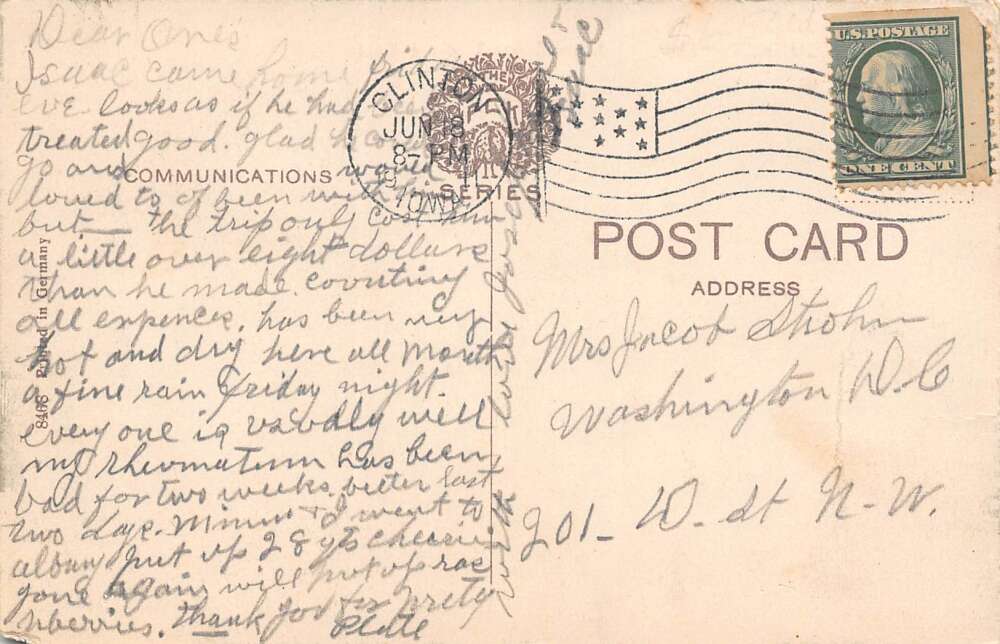 Dear One's
Isaac came home
eve looks as if he had been
treated good. glad he
go and would
loved to of been with
but — the trip only cost him
a little over eight dollars
than he made. covnting
all expences, has been very
hot and dry here all month
a fine rain Friday night.
every one is usvally well
my rhevmatism has been
bad for two weeks, better last
two days. Minnie & I went to
albany put up 28 qts cherries
gone again will put up ras
pberries. Thank you for prety
Plate
with love
COMMUNICATIONS
8466 Printed in Germany
THE
SERIES
CLINTON
JUN 18
8- PM
IOWA
U.S. POSTAGE
ONE CENT
POST CARD
ADDRESS
Mrs Jacob Strohm
Washington D.C
201- D- st N-W.